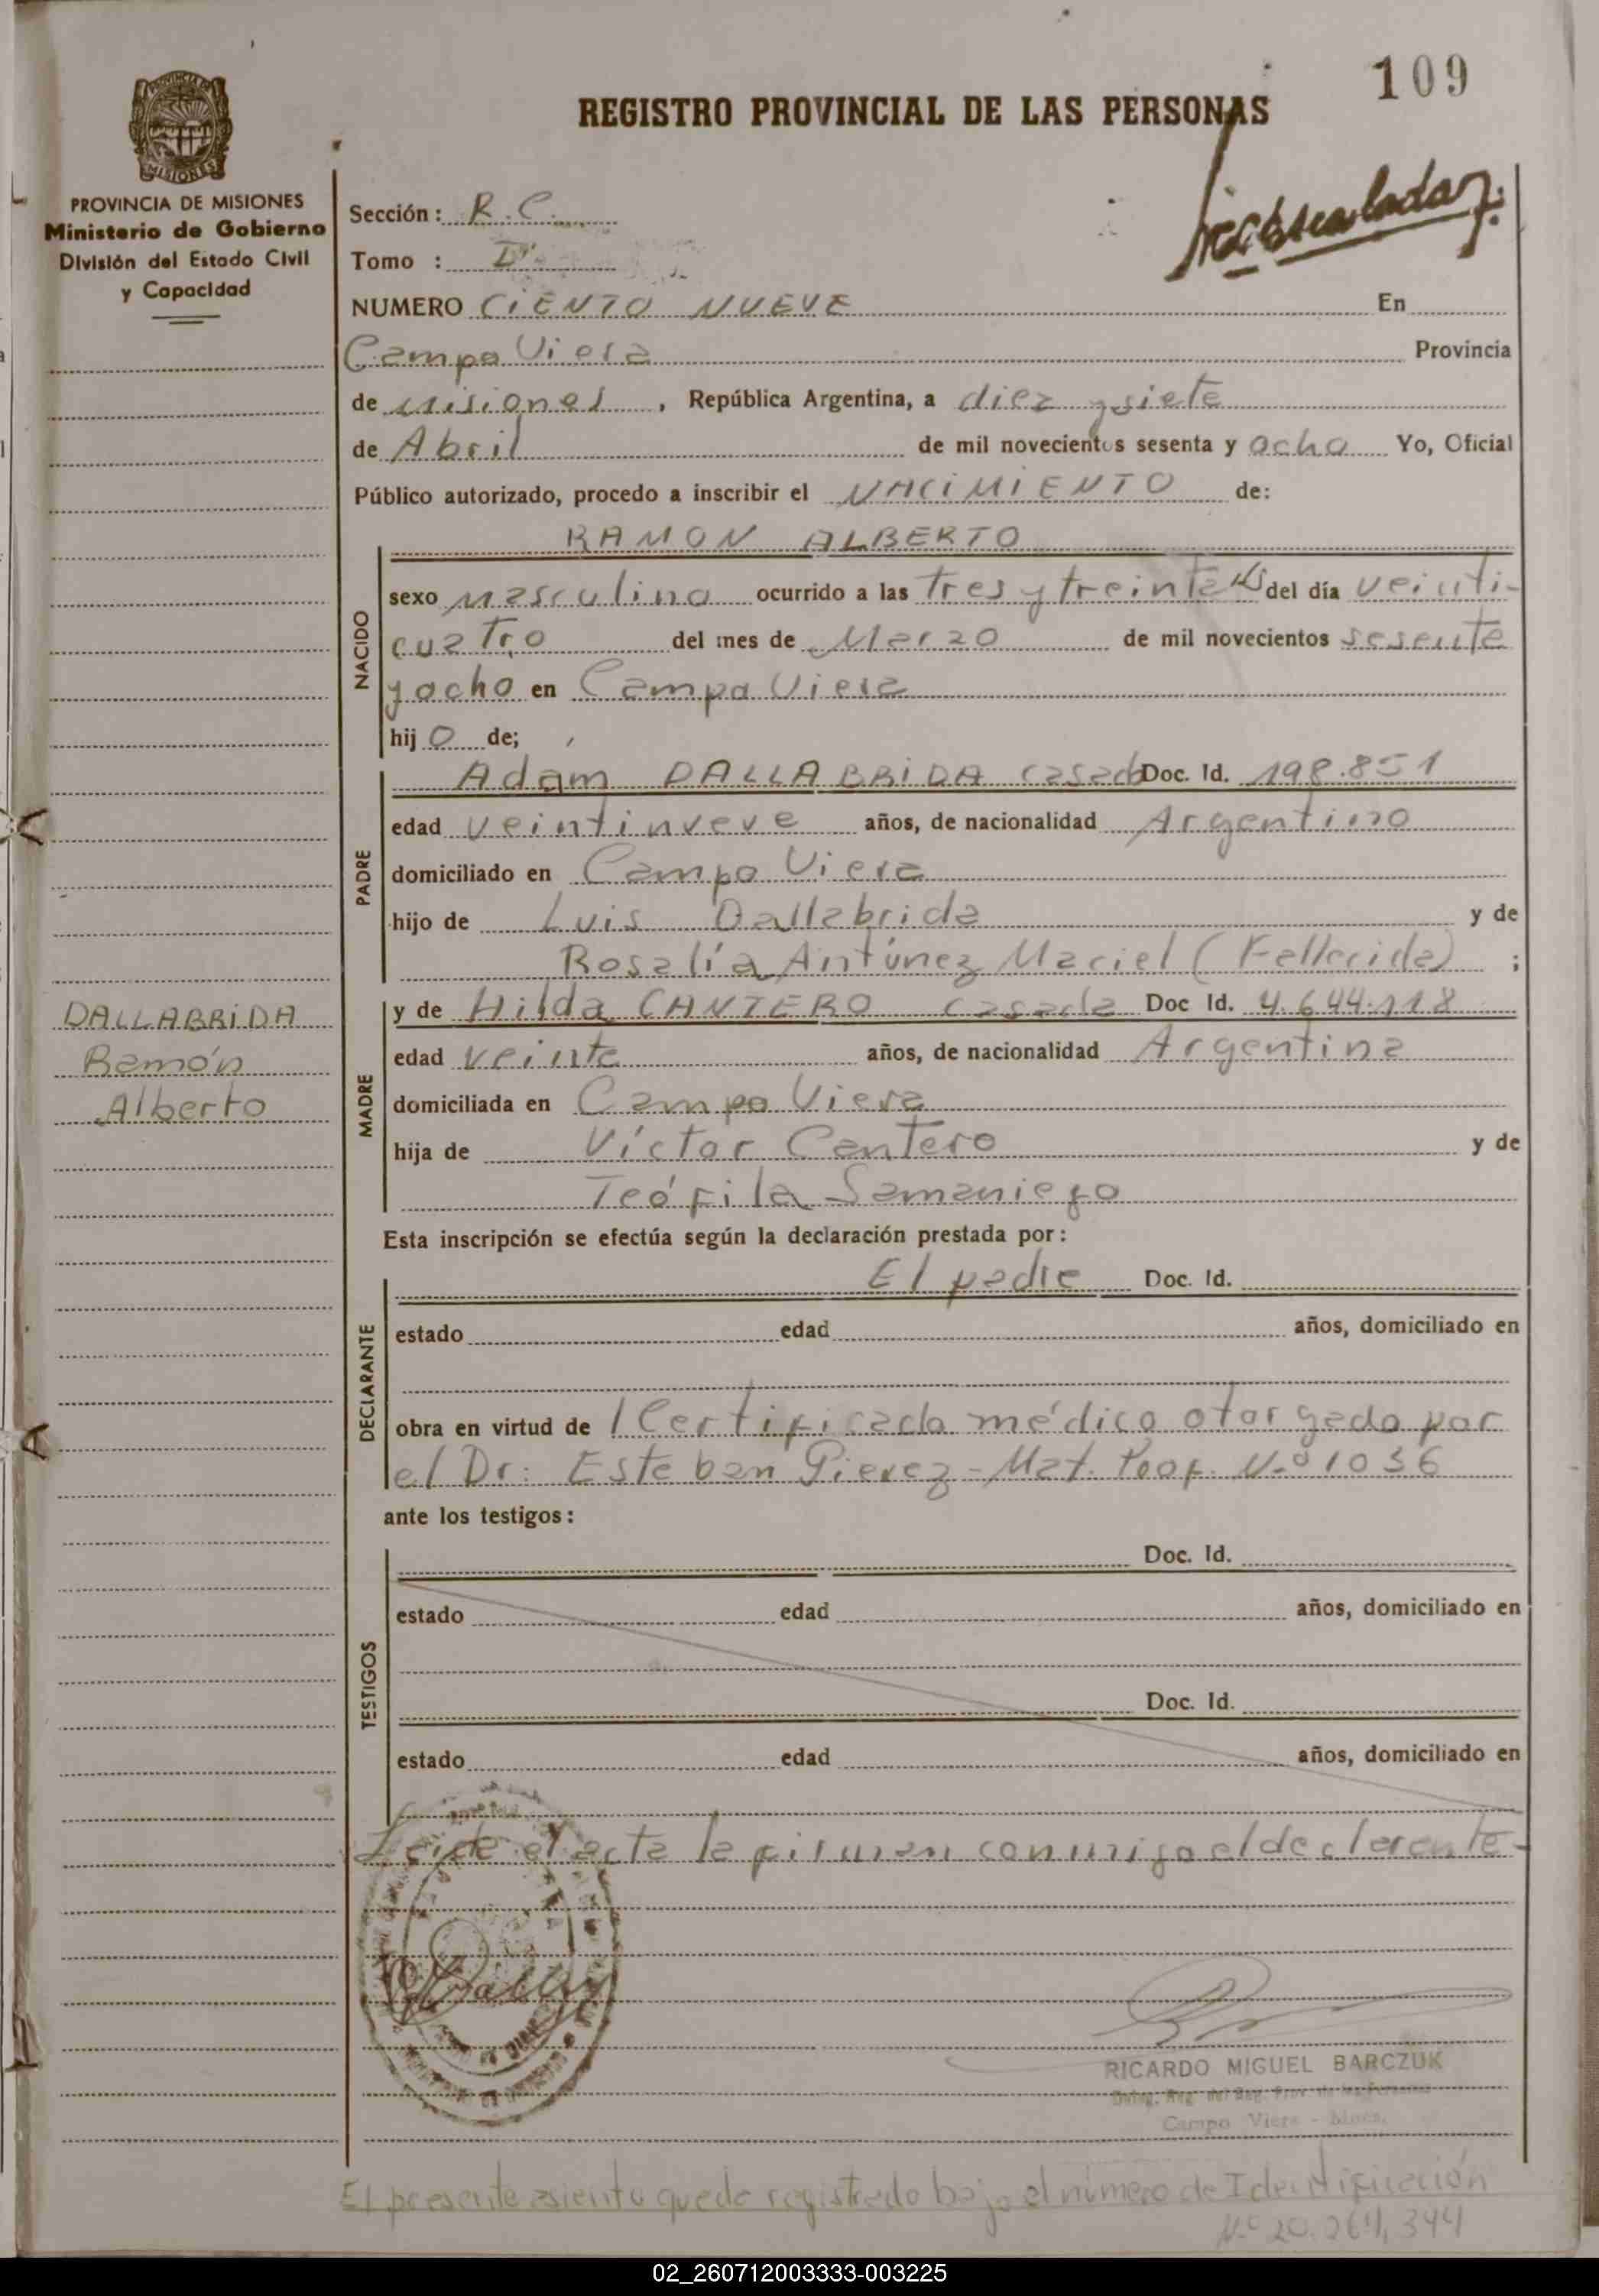 109
REGISTRO PROVINCIAL DE LAS PERSONAS
MISIONES
PROVINCIA DE MISIONES
Ministerio de Gobierno
División del Estado Civil
y Capacidad
Sección: R.C.
Tomo :
NUMERO CIENTO NUEVE En
Campo Viera Provincia
de Misiones, República Argentina, a diez y siete
de Abril de mil novecientos sesenta y ocho Yo, Oficial
Público autorizado, procedo a inscribir el NACIMIENTO de:
RAMON ALBERTO
NACIDO
sexo masculino ocurrido a las tres y treinta del día veinti-
cuatro del mes de Marzo de mil novecientos sesenta
y ocho en Campo Viera
hijo de;
PADRE
Adam DALLABRIDA casado Doc. Id. 198.851
edad veintinueve años, de nacionalidad Argentino
domiciliado en Campo Viera
hijo de Luis Dallabrida y de
Rosalía Antúnez Maciel (Fallecida) ;
DALLABRIDA
Ramón
Alberto
MADRE
y de Hilda CANTERO casada Doc Id. 4.644.118
edad veinte años, de nacionalidad Argentina
domiciliada en Campo Viera
hija de Víctor Cantero y de
Teófila Samaniego
Esta inscripción se efectúa según la declaración prestada por:
DECLARANTE
El padre Doc. Id.
estado edad años, domiciliado en
obra en virtud de 1 Certificado médico otorgado por
el Dr: Esteban Pierez - Mat. Prof. N.º 1036
ante los testigos:
TESTIGOS
Doc. Id.
estado edad años, domiciliado en
Doc. Id.
estado edad años, domiciliado en
Leída el acta la firman conmigo el declarante-
RICARDO MIGUEL BARCZUK
Campo Viera - Mnes.
El presente asiento queda registrado bajo el número de Identificación
N.º 20.264.344
02_260712003333-003225